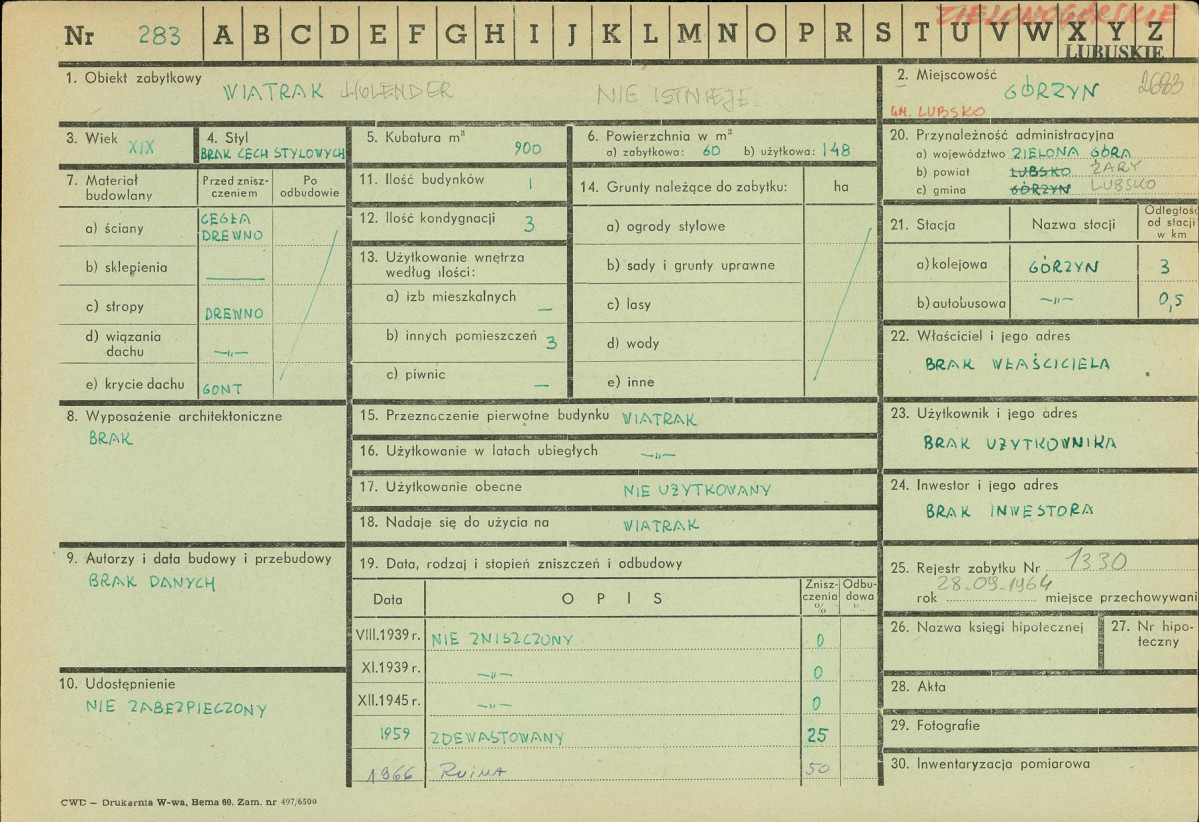 ZIELONOGÓRSKIE
Nr 283 A B C D E F G H I J K L M N O P R S T U V W X Y Z
LUBUSKIE
1. Obiekt zabytkowy
WIATRAK HOLENDER NIE ISTNIEJE
2. Miejscowość
GÓRZYN 2683
GM. LUBSKO
3. Wiek XIX
4. Styl
BRAK CECH STYLOWYCH
5. Kubatura m³
900
6. Powierzchnia w m²
a) zabytkowa: 60 b) użytkowa: 148
20. Przynależność administracyjna
a) województwo ZIELONA GÓRA
b) powiat LUBSKO ŻARY
c) gmina GÓRZYN LUBSKO
7. Materiał budowlany
Przed zniszczeniem
Po odbudowie
a) ściany CEGŁA
DREWNO
b) sklepienia —
c) stropy DREWNO
d) wiązania
dachu —„—
e) krycie dachu GONT
11. Ilość budynków 1
12. Ilość kondygnacji 3
13. Użytkowanie wnętrza
według ilości:
a) izb mieszkalnych —
b) innych pomieszczeń 3
c) piwnic —
14. Grunty należące do zabytku: ha
a) ogrody stylowe
b) sady i grunty uprawne
c) lasy
d) wody
e) inne
21. Stacja Nazwa stacji Odległość
od stacji
w km
a) kolejowa GÓRZYN 3
b) autobusowa —„— 0,5
22. Właściciel i jego adres
BRAK WŁAŚCICIELA
8. Wyposażenie architektoniczne
BRAK
15. Przeznaczenie pierwotne budynku WIATRAK
16. Użytkowanie w latach ubiegłych —„—
17. Użytkowanie obecne NIE UŻYTKOWANY
18. Nadaje się do użycia na WIATRAK
23. Użytkownik i jego adres
BRAK UŻYTKOWNIKA
24. Inwestor i jego adres
BRAK INWESTORA
9. Autorzy i data budowy i przebudowy
BRAK DANYCH
19. Data, rodzaj i stopień zniszczeń i odbudowy
Data OPIS Znisz-
czenia
% Odbu-
dowa
VIII.1939 r. NIE ZNISZCZONY 0
XI.1939 r. —„— 0
XII.1945 r. —„— 0
1959 ZDEWASTOWANY 25
1966 RUINA 50
25. Rejestr zabytku Nr 1330
28.09.1964
rok miejsce przechowywani
26. Nazwa księgi hipotecznej
27. Nr hipo-
teczny
10. Udostępnienie
NIE ZABEZPIECZONY
28. Akta
29. Fotografie
30. Inwentaryzacja pomiarowa
CWD — Drukarnia W-wa, Bema 60. Zam. nr 497/6500